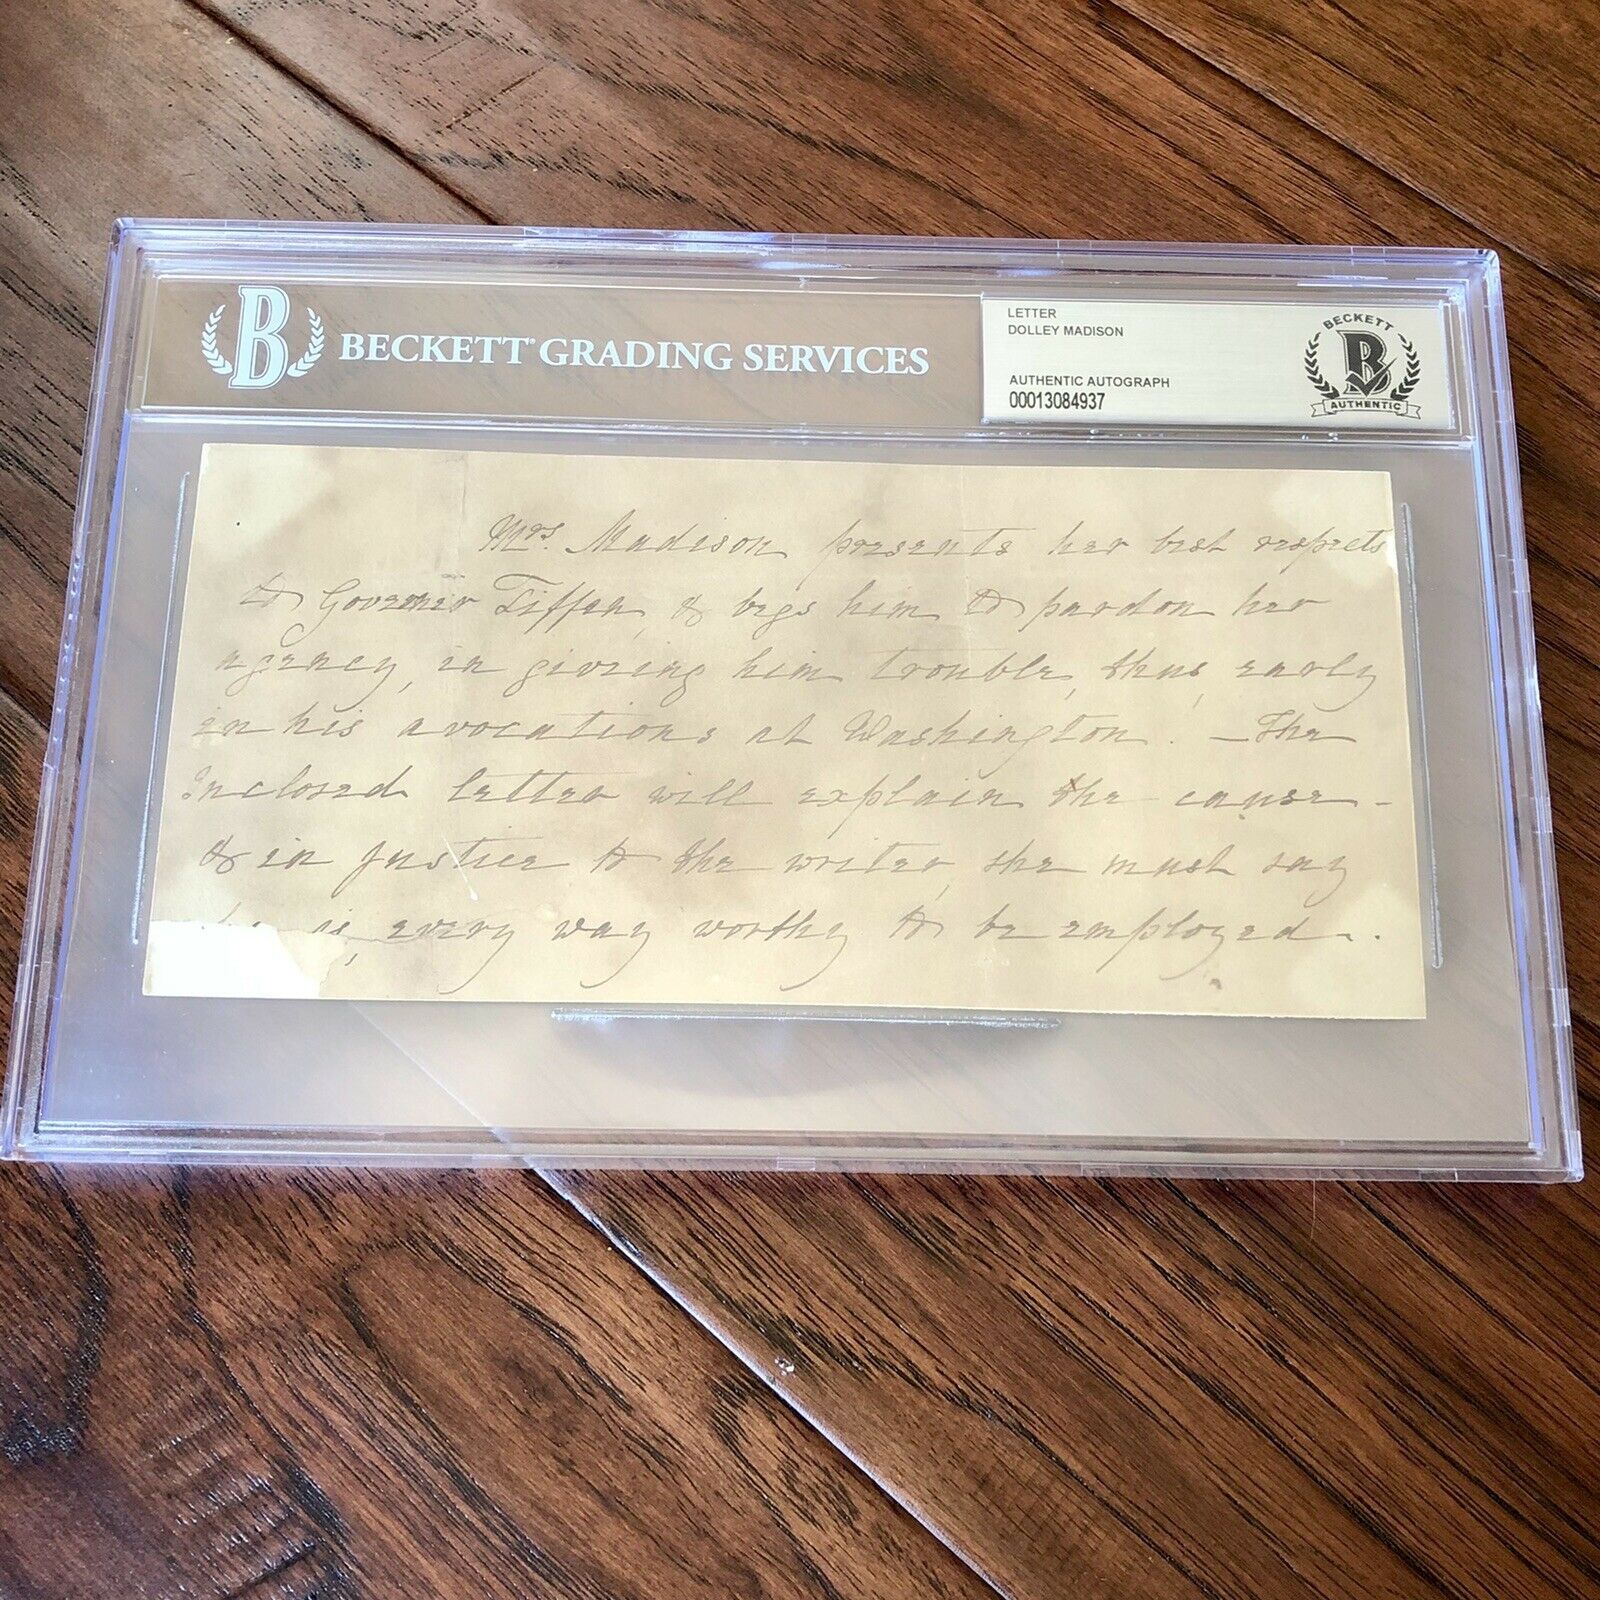 B BECKETT GRADING SERVICES
LETTER
DOLLEY MADISON
AUTHENTIC AUTOGRAPH
00013084937
BECKETT
B
AUTHENTIC
Mrs. Madison presents her best respects
to Governor Tiffen, & begs him to pardon her
agency, in giving him trouble, thus, early
in his avocations at Washington. — The
Inclosed letter will explain the cause -
& in justice to the writer, she must say
is, every way worthy to be employed.